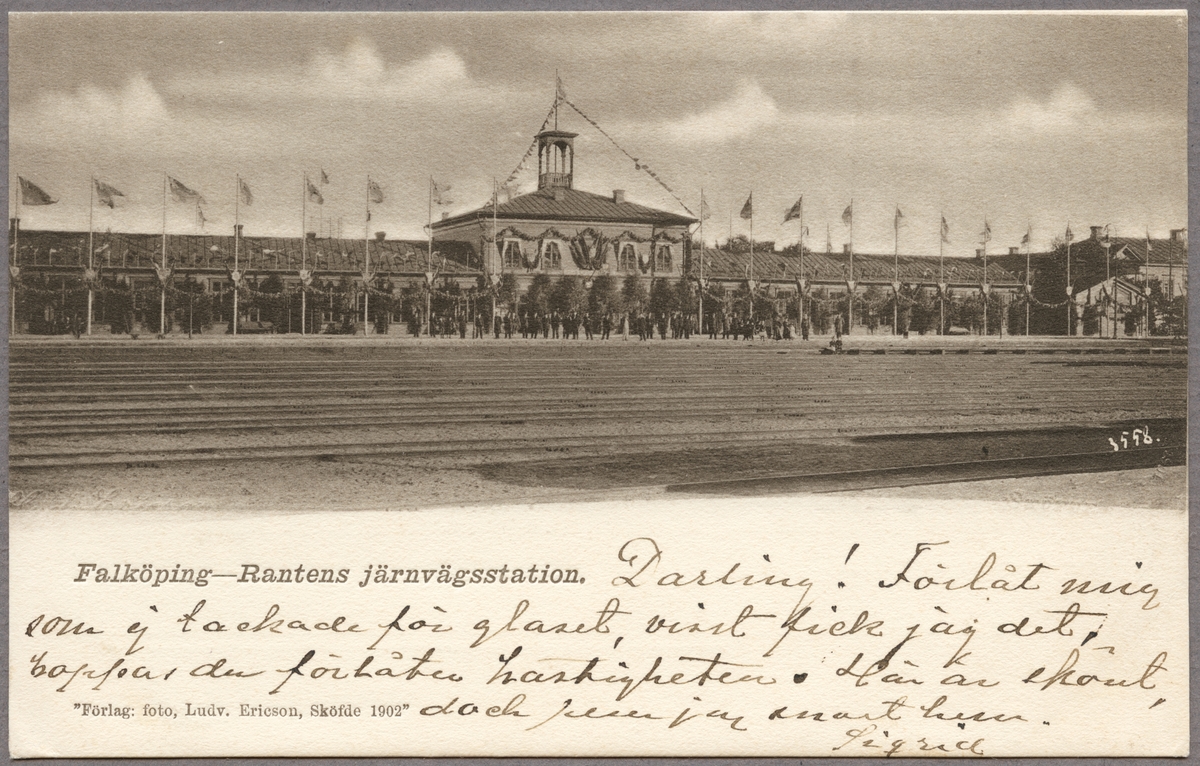 3558.
Falköping—Rantens järnvägsstation. Darling! Förlåt mig
som ej tackade för glaset, visst fick jag det,
hoppas du förlåten hastigheten. Här är skönt,
"Förlag: foto, Ludv. Ericson, Sköfde 1902" dock jag snart hem.
Sigrid